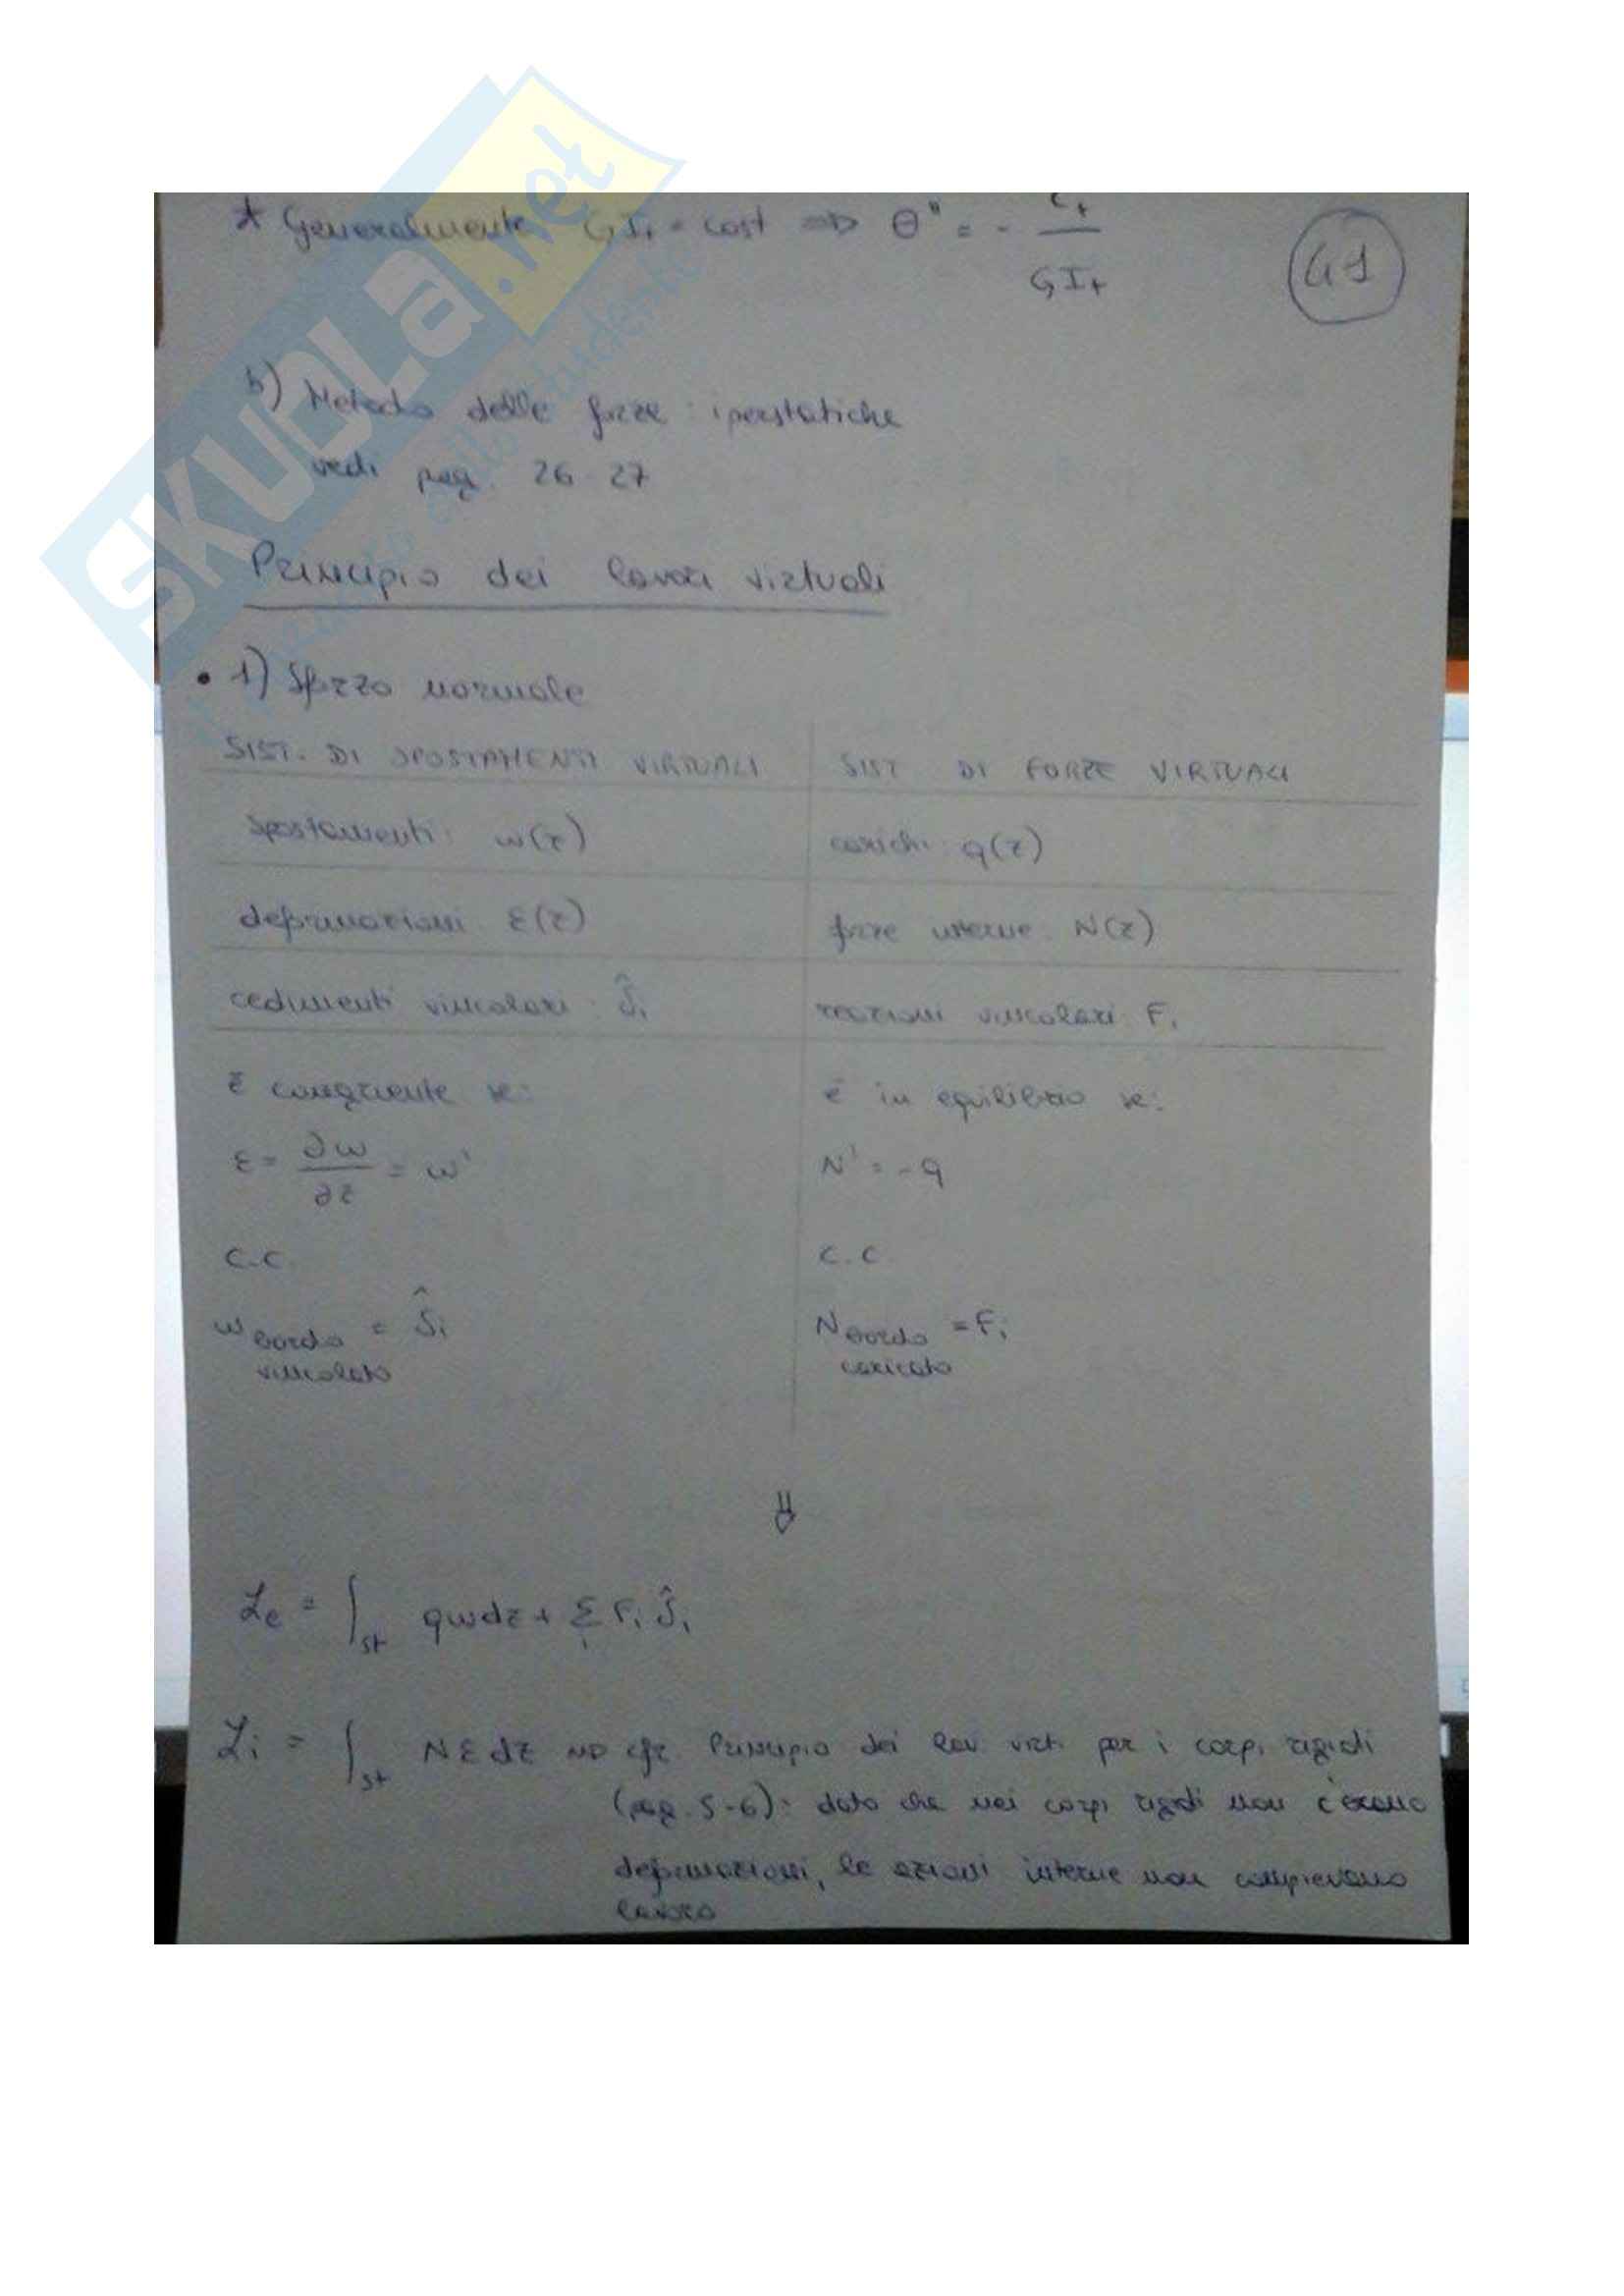 * Generalmente GIt = cost => θ" = - Ct / GIt
41
b) Metodo delle forze: iperstatiche
vedi pag. 26-27
Principio dei lavori virtuali
• 1) Sforzo normale
SIST. DI SPOSTAMENTI VIRTUALI | SIST DI FORZE VIRTUALI
spostamenti: w(z) | carichi: q(z)
deformazioni: ε(z) | forze interne: N(z)
cedimenti vincolari: δ̂i | reazioni vincolari: Fi
è congruente se: | è in equilibrio se:
ε = ∂w/∂z = w' | N' = -q
C.C. | C.C.
w bordo vincolato = δ̂i | N bordo caricato = Fi
⇓
Le = ∫st qwdz + Σi Fi δ̂i
Li = ∫st Nεdz => cfr. Principio dei lav. virt. per i corpi rigidi
(pag. 5-6): dato che nei corpi rigidi non c'erano
deformazioni, le azioni interne non compievano
lavoro
SKUOLA.net